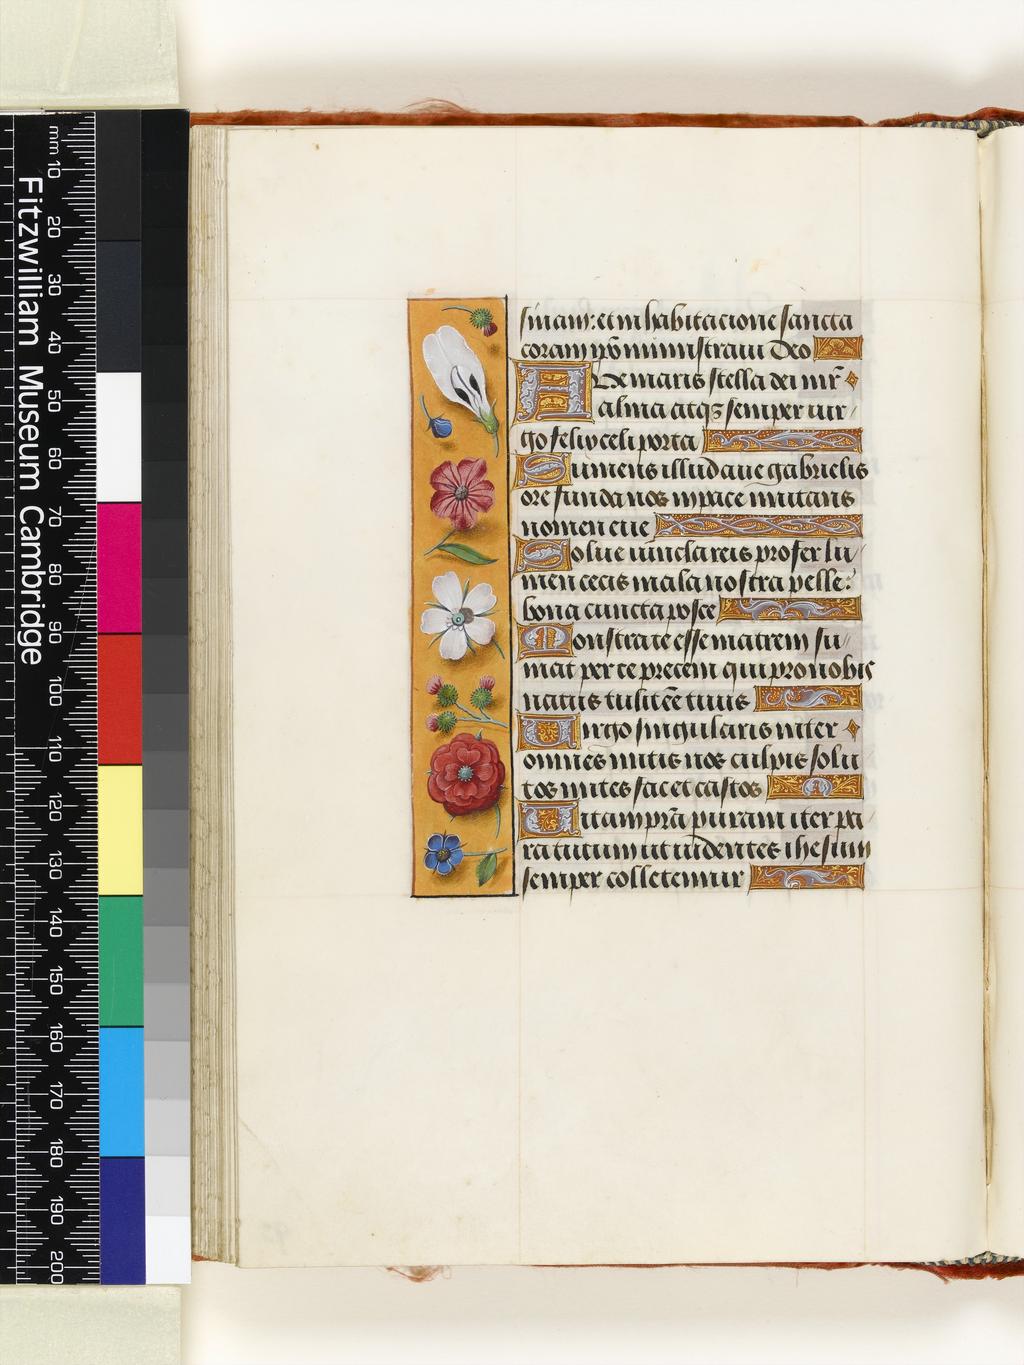 Fitzwilliam Museum Cambridge
mm 10 20 30 40 50 60 70 80 90 100 110 120 130 140 150 160 170 180 190 200
sinam: et in habitacione sancta
coram ipō ministraui Deo
AVe maris stella dei mr̄
alma atqꝫ semper vir
go felix celi porta
Sumens illud aue gabrielis
ore funda nos in pace mutans
nomen eue
Solue vincla reis profer lu
men cecis mala nostra pelle:
bona cuncta posce
Monstra te esse matrem su
mat per te precem qui pro nobis
natus tulit eē tuus
Uirgo singularis inter
omnes mitis nos culpis solu
tos mites fac et castos
Uitam prā puram iter pa
ra tutum ut videntes ihesum
semper colletemur